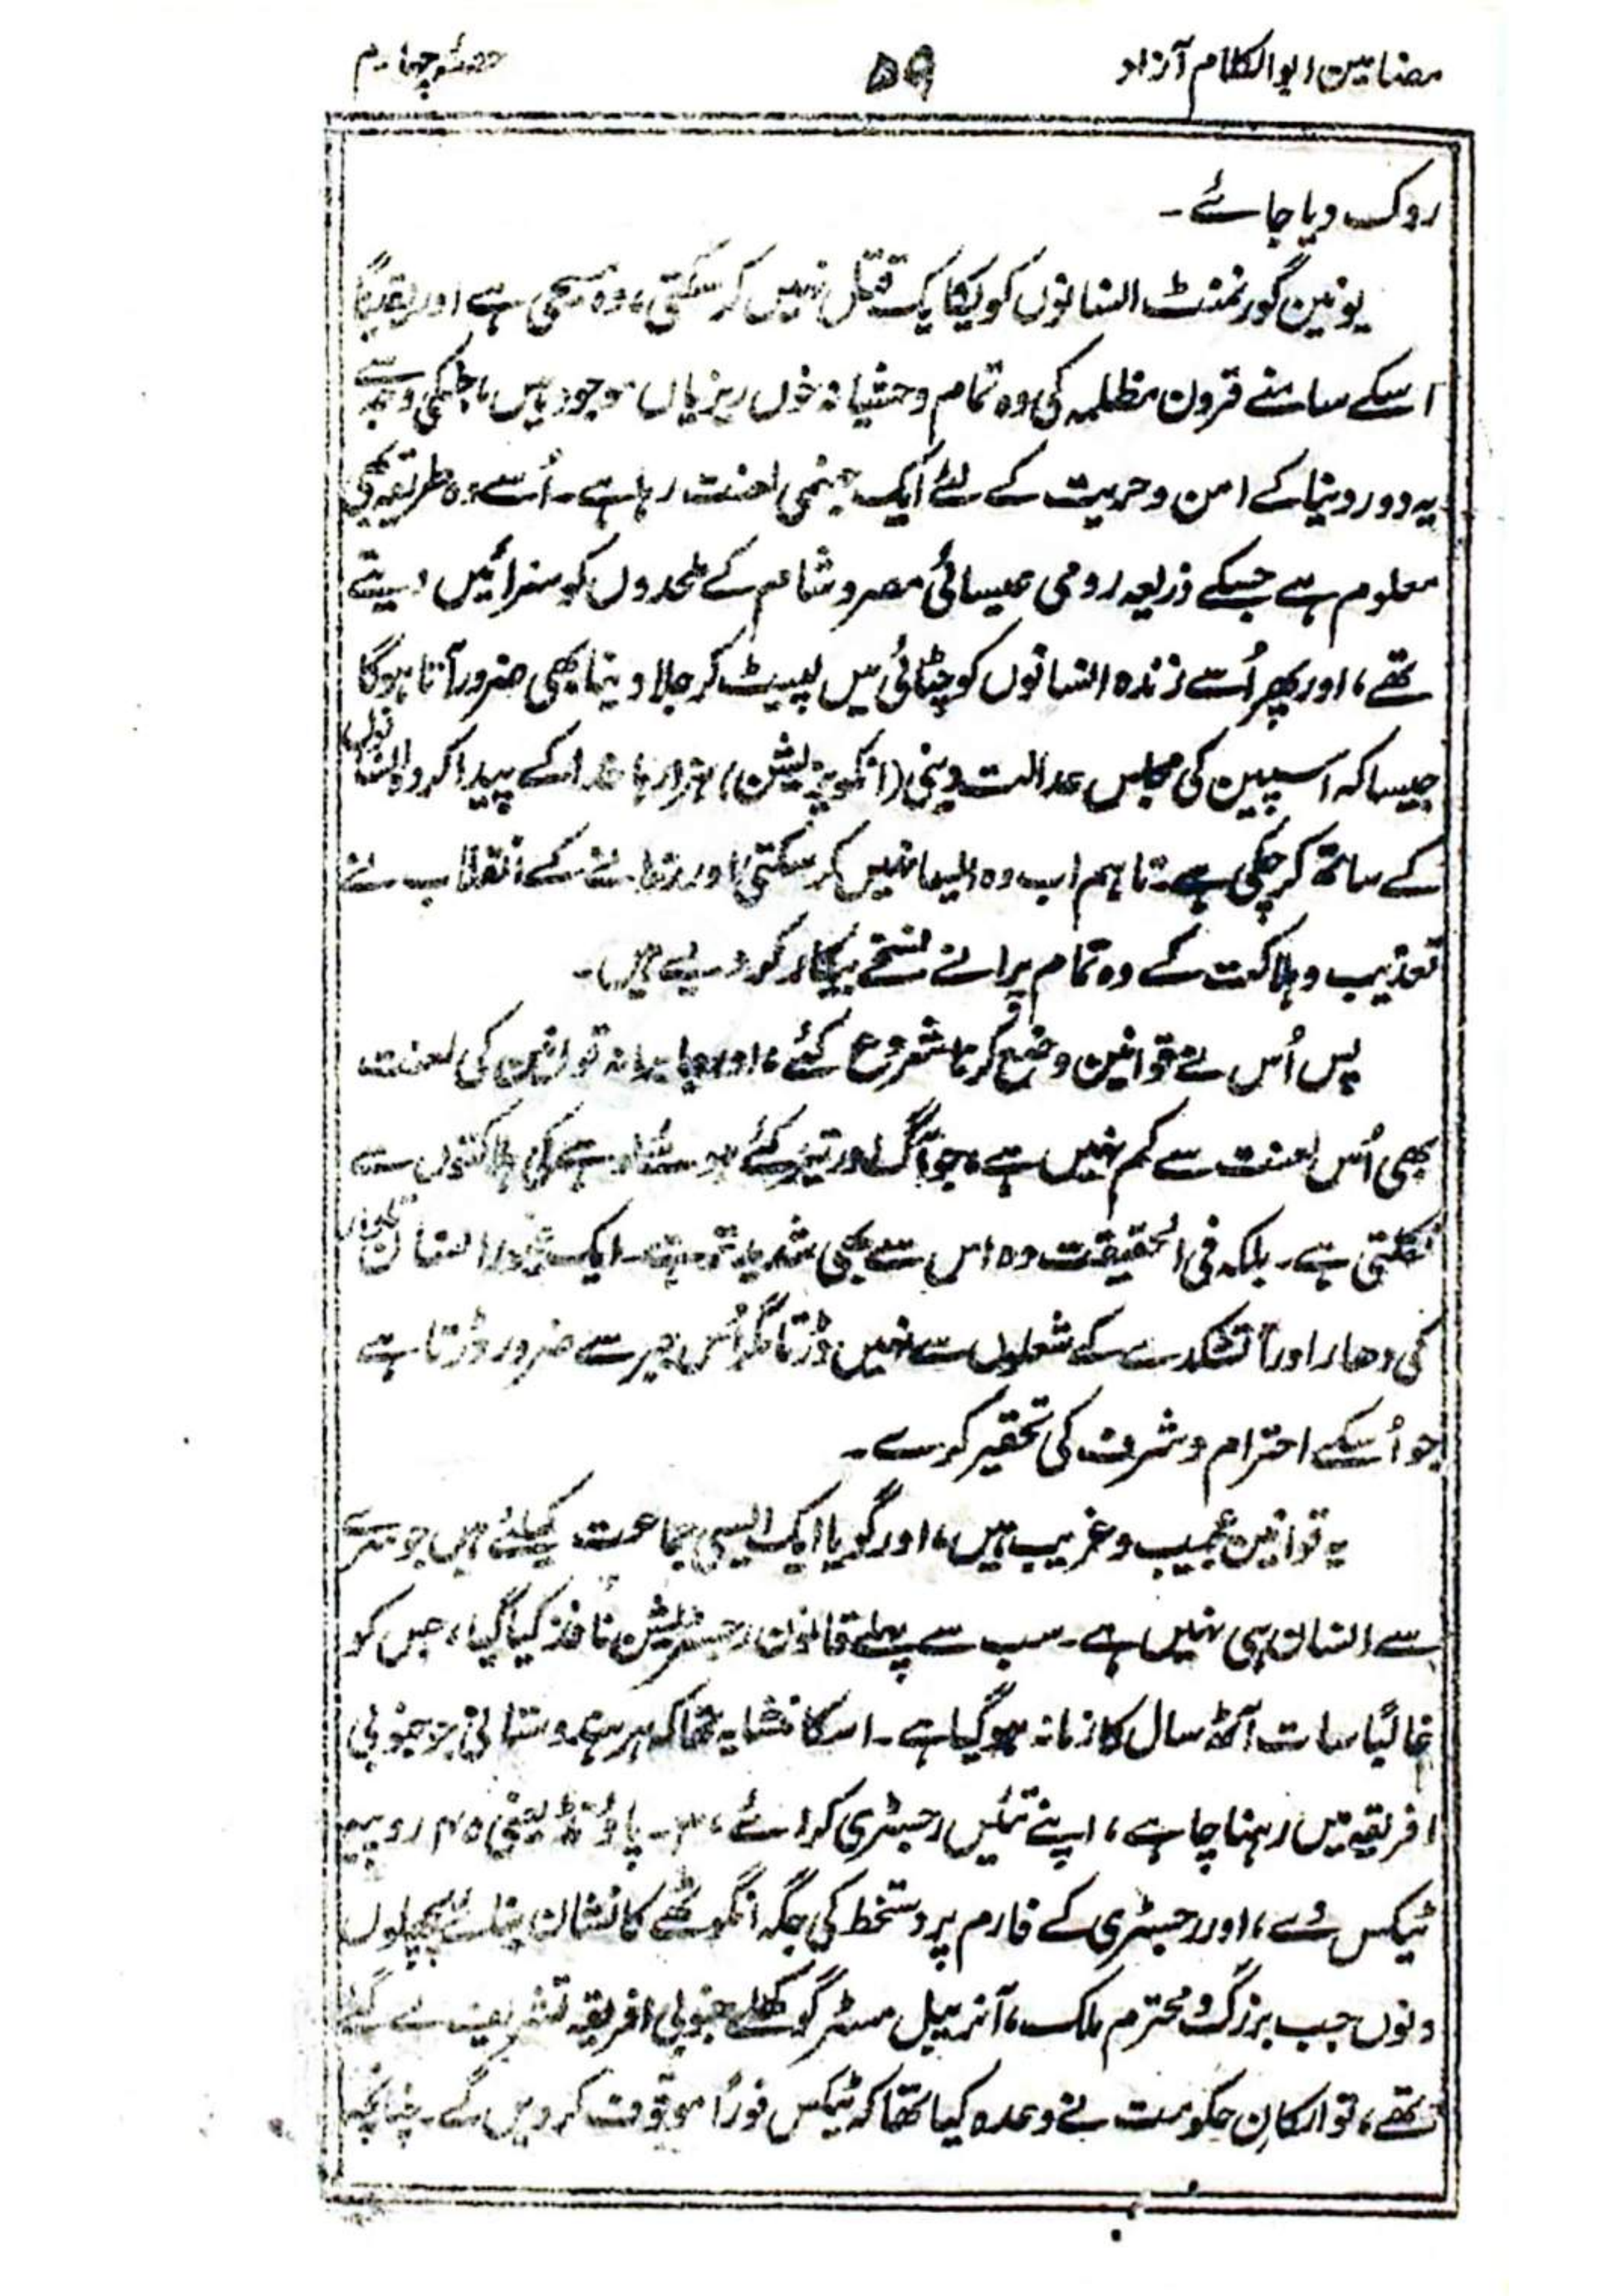 مضامین ابوالکلام آزاد
۵۹
حصۂ چہارم
روک دیا جائے۔
یونین گورنمنٹ انسانوں کو یکایک قتل نہیں کر سکتی، وہ مسیحی ہے اور یقیناً
اسکے سامنے قرون مظلمہ کی وہ تمام وحشیانہ خوں ریزیاں موجود ہیں، جنکی وجہ سے
یہ دور دنیا کے امن و حریت کے لئے ایک جہنمی لعنت رہا ہے۔ اُسے وہ طریقہ بھی
معلوم ہے جسکے ذریعہ رومی عیسائی مصر و شام کے ملحدوں کو سزائیں دیتے
تھے، اور پھر اُسے زندہ انسانوں کو چٹائی میں لپیٹ کر جلا دینا بھی ضرور آتا ہوگا
جیسا کہ اسپین کی مجلس عدالت دینی (انکویزیشن) ہزارہا خدا کے پیدا کردہ انسانوں
کے ساتھ کر چکی ہے۔ تاہم اب وہ ایسا نہیں کر سکتی اور زمانے کے انقلاب نے
تعذیب و ہلاکت کے وہ تمام پرانے نسخے بیکار کر دیے ہیں۔
پس اُس نے قوانین وضع کرنا شروع کئے، اور جابرانہ قوانین کی لعنت
بھی اُس لعنت سے کم نہیں ہے، جو آگ اور تیز کئے ہوئے لوہے کی ہلاکتوں سے
نکلتی ہے۔ بلکہ فی الحقیقت وہ اس سے بھی شدید تر ہے۔ ایک انسان تلوار
کی دھار اور آتشکدے کے شعلوں سے نہیں ڈرتا مگر اُس چیز سے ضرور ڈرتا ہے
جو اُسکے احترام و شرف کی تحقیر کرے۔
یہ قوانین عجیب و غریب ہیں، اور گویا ایک ایسی جماعت کیلئے ہیں جو سرے
سے انسان ہی نہیں ہے۔ سب سے پہلے قانون رجسٹریشن نافذ کیا گیا، جس کو
غالباً سات آٹھ سال کا زمانہ ہو گیا ہے۔ اسکا منشا یہ تھا کہ ہر ہندوستانی جو جنوبی
افریقہ میں رہنا چاہے، اپنے تئیں رجسٹری کرائے، ۳۔ پاؤنڈ یعنی ۴۵ روپیہ
ٹیکس دے، اور رجسٹری کے فارم پر دستخط کی جگہ انگوٹھے کا نشان بنائے پچھلوں
دنوں جب بزرگ و محترم ملک، آنریبل مسٹر گوکھلے جنوبی افریقہ تشریف لے گئے
تھے، تو ارکانِ حکومت نے وعدہ کیا تھا کہ ٹیکس فوراً موقوف کر دیں گے۔ چنانچہ